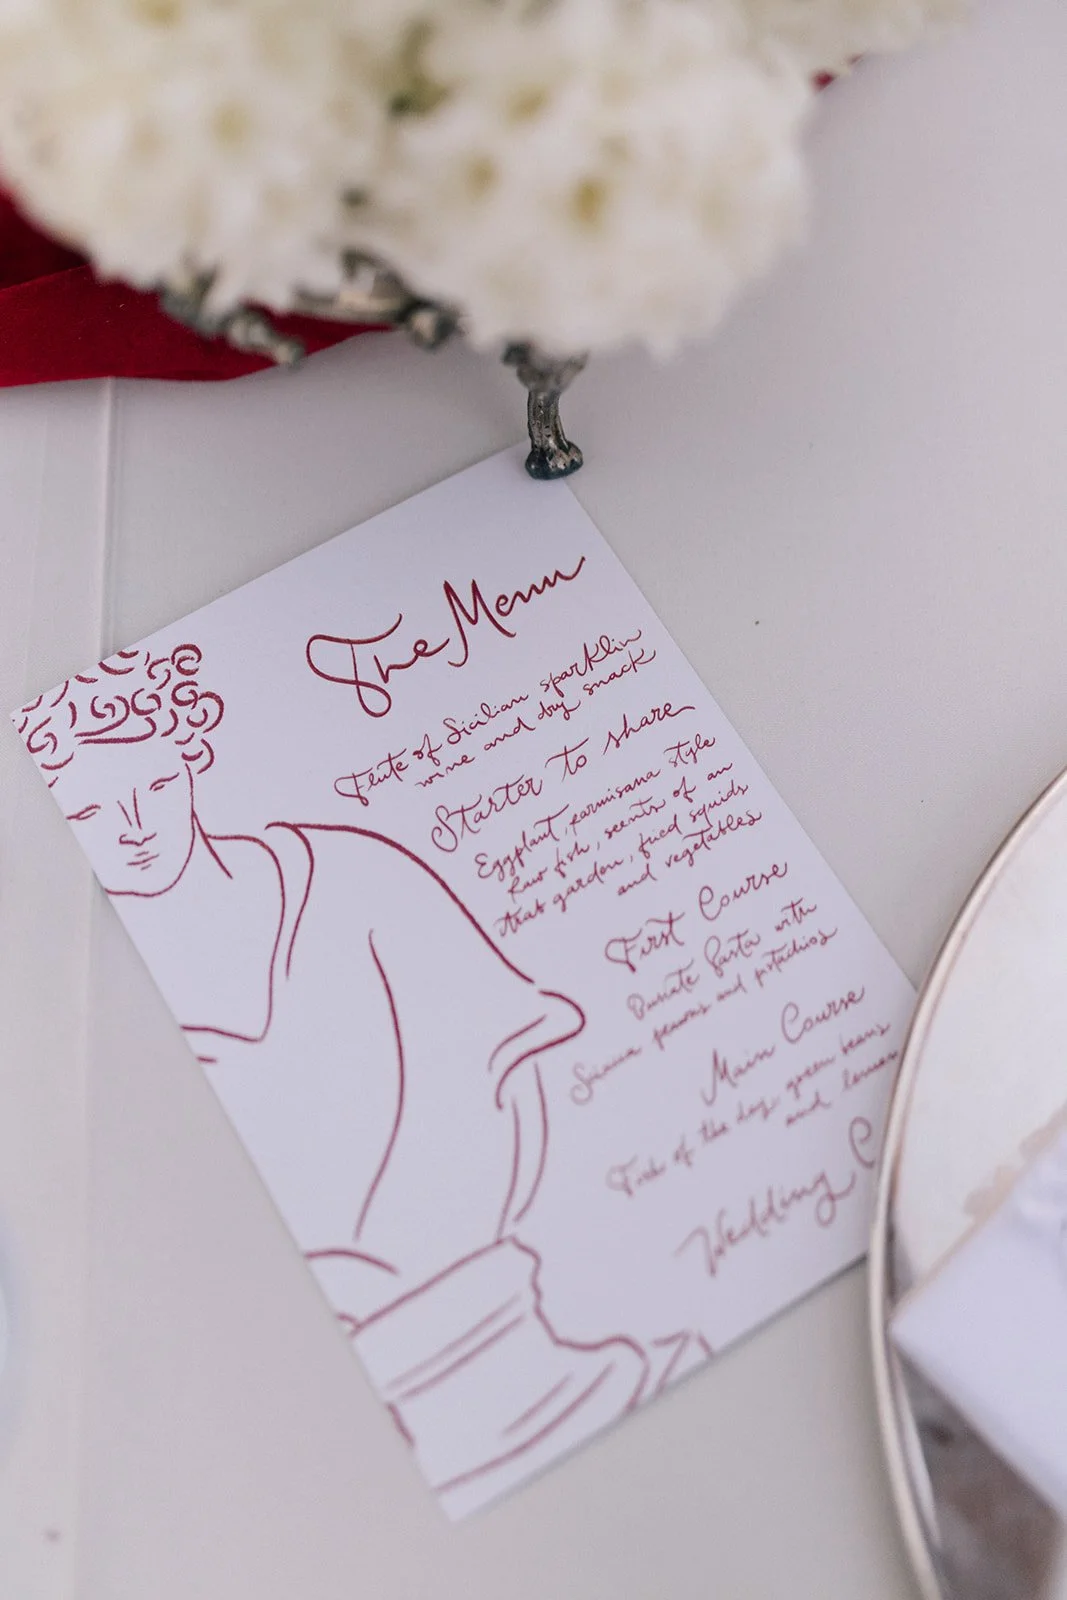 The Menu
Flute of Sicilian sparklin
wine and dry snack
Starter to share
Eggplant, parmisana style
Raw fish, scents of an
fried squids
and vegetables
First Course
Busiate Pasta with
prawns and pistachios
Main Course
of the day green beans
and lemon
Wedding C